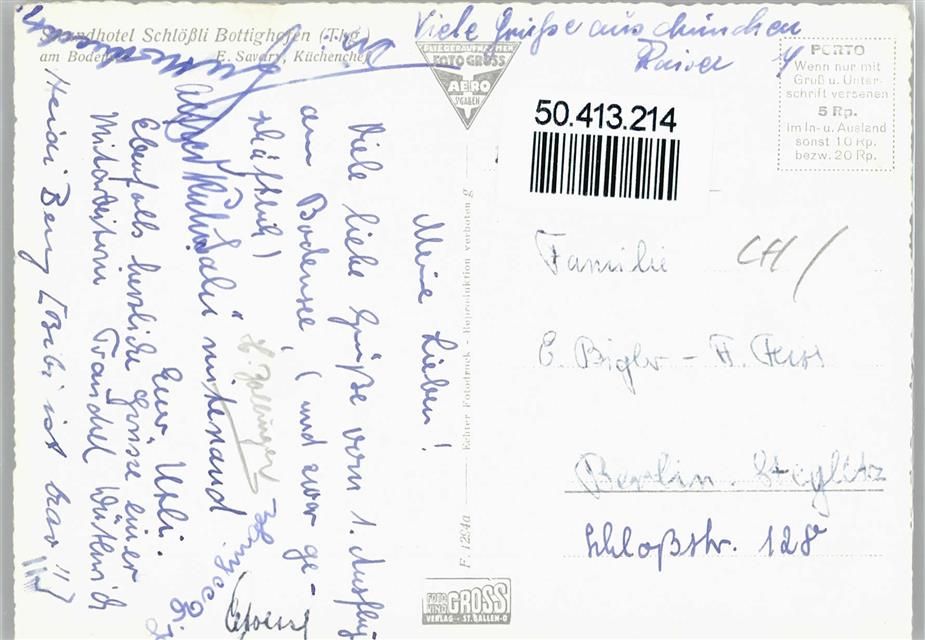 Strandhotel Schlößli Bottighofen (Thg.)
am Bodensee E. Savary, Küchenchef
Viele Grüße aus München
Rainer
FLIEGERAUFNAHMEN
FOTO GROSS
AERO
ST.GALLEN
PORTO
Wenn nur mit
Gruß u. Unter-
schrift versehen
5 Rp.
im In- u. Ausland
sonst 10 Rp.
bezw. 20 Rp.
50.413.214
Meine Lieben!
Viele liebe Grüße vom 1. Ausflug
am Bodensee! (und zwar ge-
schäftlich)
Eure Uschi.
Ebenfalls herzliche Grüsse einer
Mitarbeiterin
Heidi Berg (Bibi ist brav!!)
mitenand
Echter Fotodruck - Reproduktion verboten g
F. 1294a
Familie CH/
E. Bigler - F.
Berlin-Steglitz
Schloßstr. 128
FOTO
KINO
GROSS
VERLAG - ST. GALLEN-O